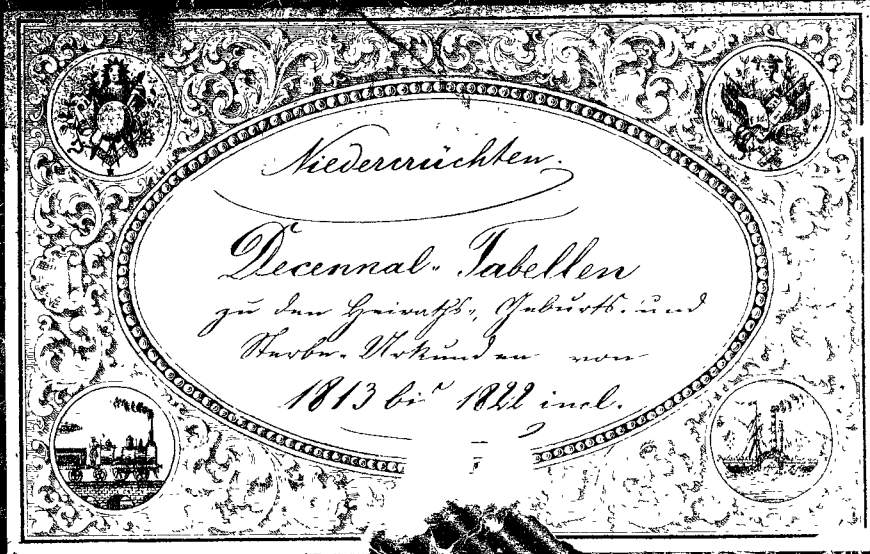 Niedercrüchten.
Decennal-Tabellen
zu den Heiraths-, Geburts- und
Sterbe-Urkunden von
1813 bis 1822 incl.